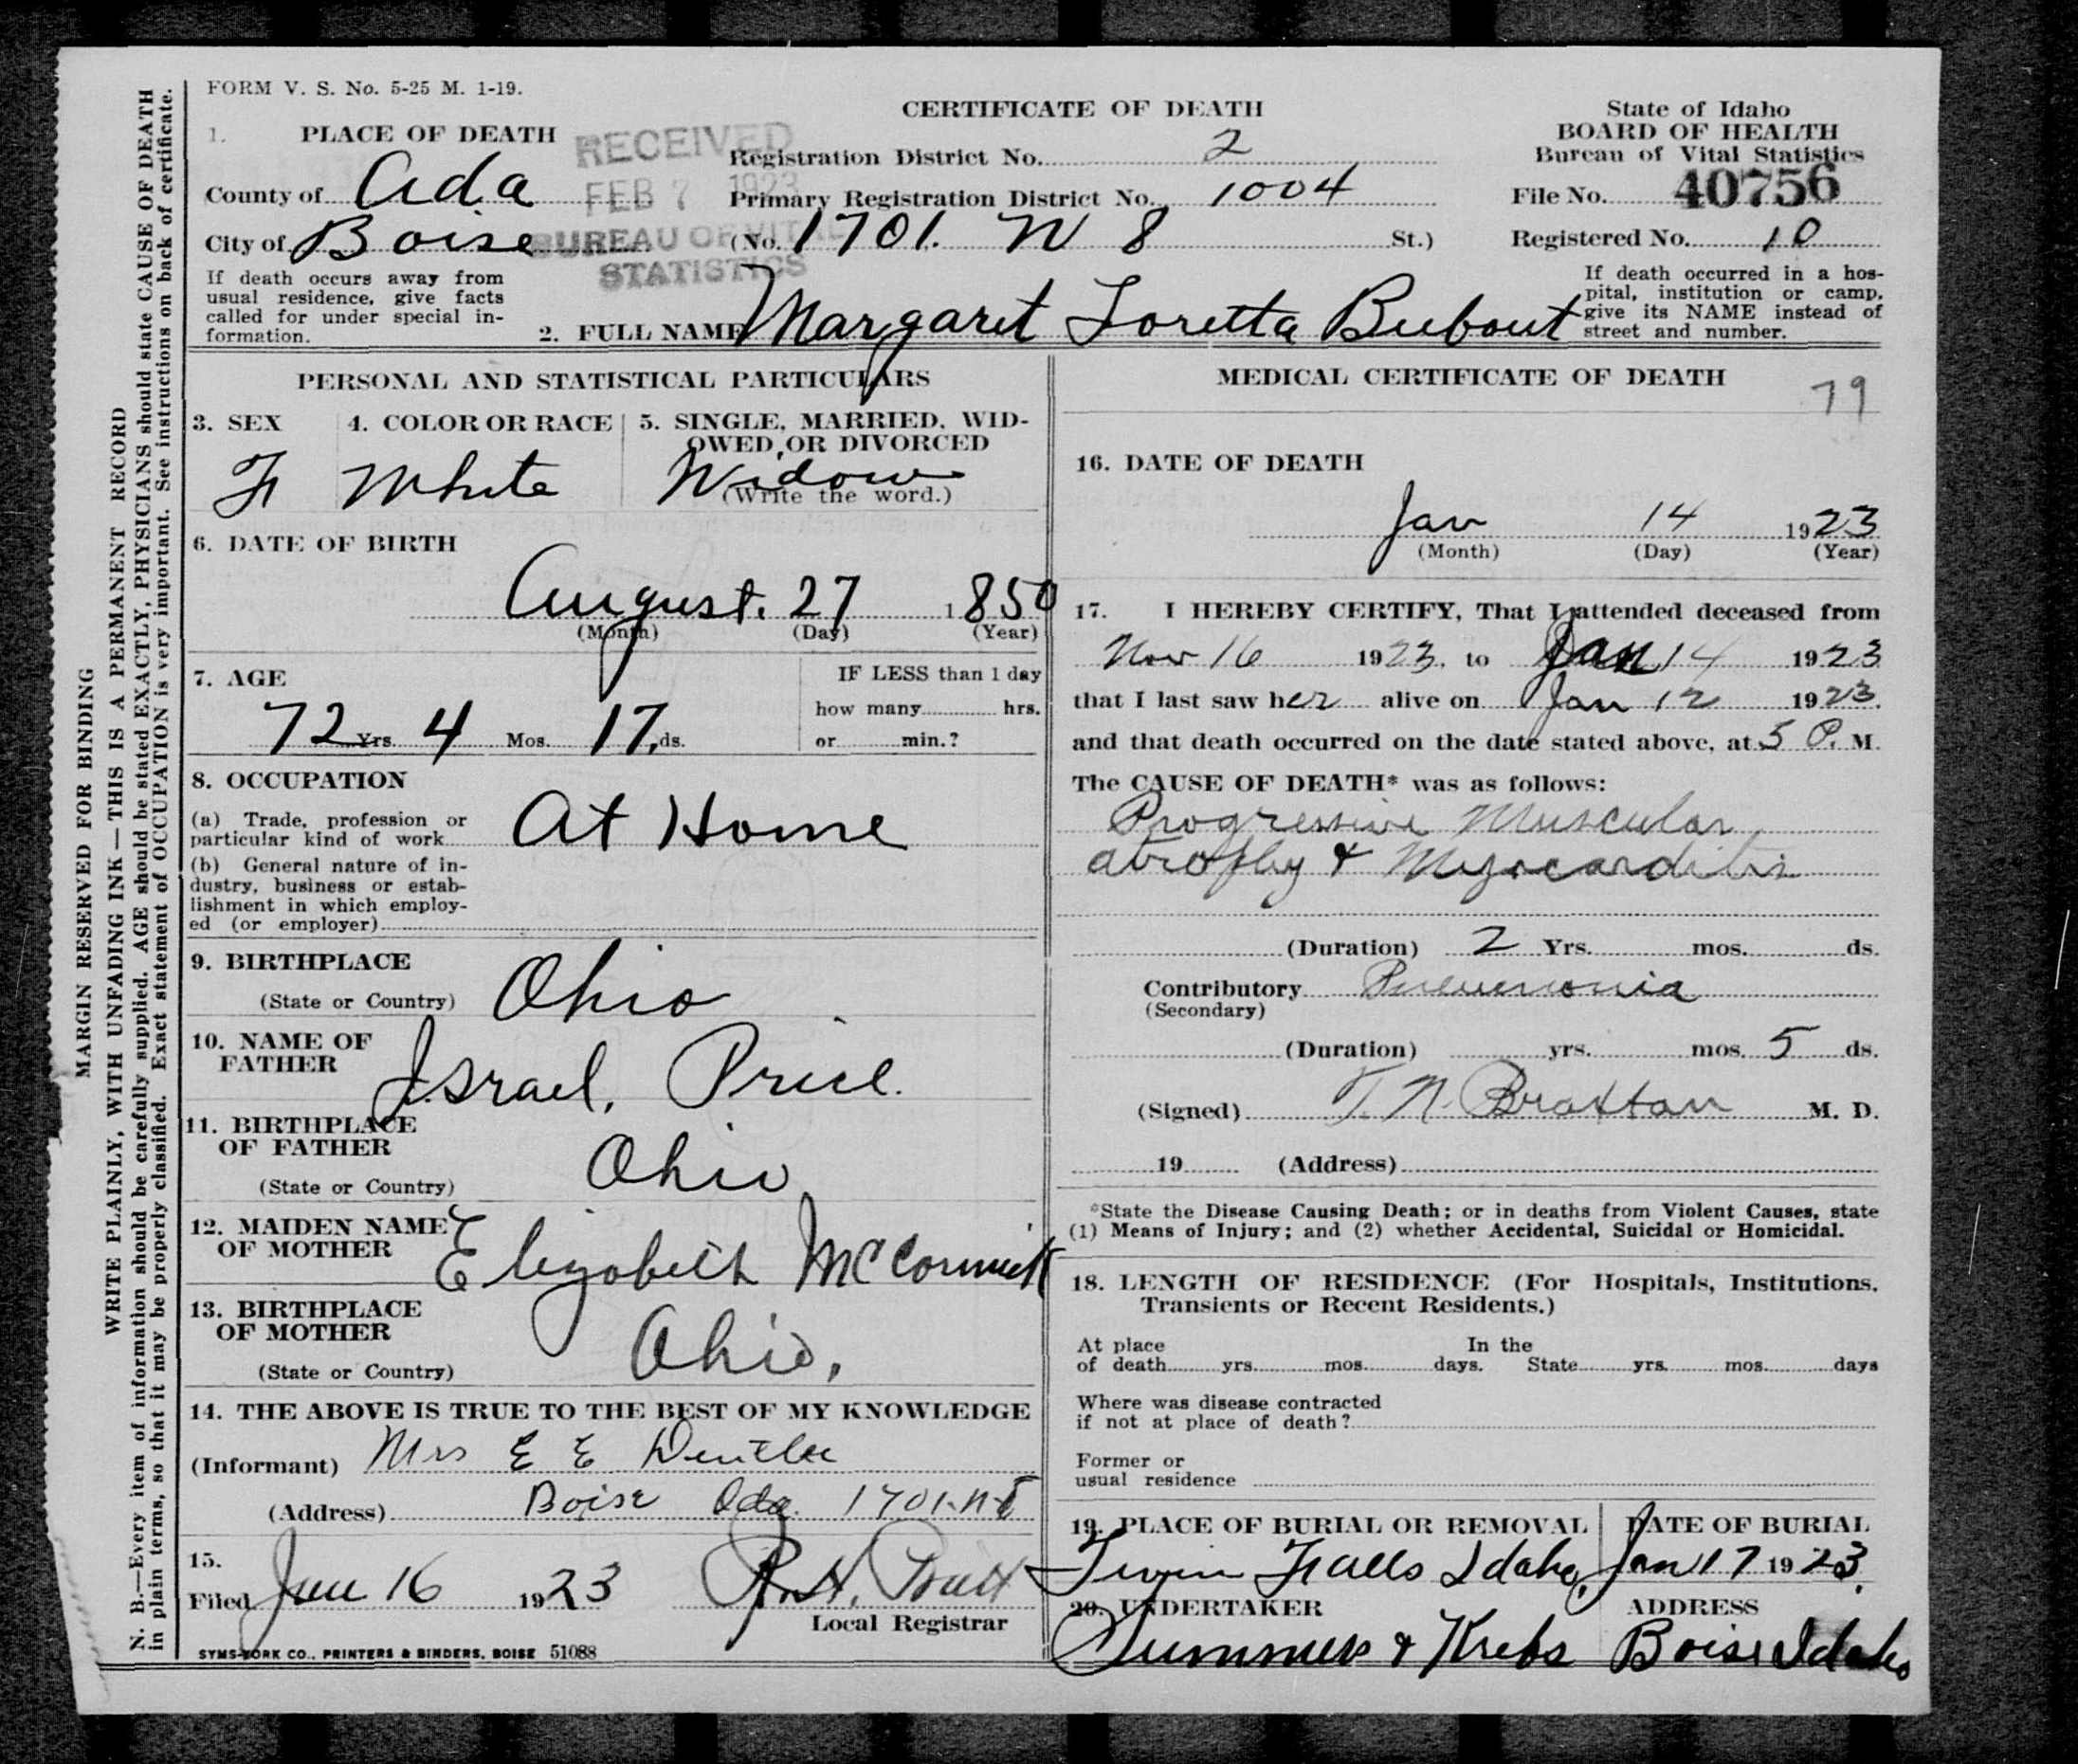 FORM V. S. No. 5-25 M. 1-19.
CERTIFICATE OF DEATH
State of Idaho
BOARD OF HEALTH
Bureau of Vital Statistics
File No. 40756
Registered No. 10
1. PLACE OF DEATH
County of Ada
City of Boise
RECEIVED
FEB 7 1923
BUREAU OF VITAL
STATISTICS
Registration District No. 2
Primary Registration District No. 1004
(No. 1701. N 8 St.)
If death occurs away from
usual residence, give facts
called for under special in-
formation.
2. FULL NAME Margaret Loretta
If death occurred in a hos-
pital, institution or camp,
give its NAME instead of
street and number.
PERSONAL AND STATISTICAL PARTICULARS
3. SEX
F
4. COLOR OR RACE
White
5. SINGLE, MARRIED, WID-
OWED, OR DIVORCED
Widow
(Write the word.)
6. DATE OF BIRTH
August. 27 1850
(Month) (Day) (Year)
7. AGE
72 Yrs. 4 Mos. 17, ds.
IF LESS than 1 day
how many hrs.
or min.?
8. OCCUPATION
(a) Trade, profession or
particular kind of work At Home
(b) General nature of in-
dustry, business or estab-
lishment in which employ-
ed (or employer)
9. BIRTHPLACE
(State or Country) Ohio
10. NAME OF
FATHER Israel, Price.
11. BIRTHPLACE
OF FATHER
(State or Country) Ohio
12. MAIDEN NAME
OF MOTHER Elizabeth McCormick
13. BIRTHPLACE
OF MOTHER
(State or Country) Ohio,
14. THE ABOVE IS TRUE TO THE BEST OF MY KNOWLEDGE
(Informant) Mrs E E
(Address) Boise Ida. 1701-N-8
15.
Filed Jan 16 1923 R. H. Pratt
Local Registrar
SYMS-YORK CO., PRINTERS & BINDERS, BOISE 51088
MEDICAL CERTIFICATE OF DEATH
79
16. DATE OF DEATH
Jan 14 1923
(Month) (Day) (Year)
17. I HEREBY CERTIFY, That I attended deceased from
Nov 16 1923, to Jan 14 1923
that I last saw her alive on Jan 12 1923.
and that death occurred on the date stated above, at 5 P. M.
The CAUSE OF DEATH* was as follows:
Progressive Muscular
atrophy & Myocarditis
(Duration) 2 Yrs. mos. ds.
Contributory Pneumonia
(Secondary)
(Duration) yrs. mos. 5 ds.
(Signed) T. N. Braxtan M. D.
19 (Address)
*State the Disease Causing Death; or in deaths from Violent Causes, state
(1) Means of Injury; and (2) whether Accidental, Suicidal or Homicidal.
18. LENGTH OF RESIDENCE (For Hospitals, Institutions,
Transients or Recent Residents.)
At place
of death yrs. mos. days.
In the
State yrs. mos. days
Where was disease contracted
if not at place of death?
Former or
usual residence
19. PLACE OF BURIAL OR REMOVAL
Twin Falls Idaho,
DATE OF BURIAL
Jan 17 1923.
20. UNDERTAKER
Summers & Krebs
ADDRESS
Boise Idaho
MARGIN RESERVED FOR BINDING
WRITE PLAINLY, WITH UNFADING INK—THIS IS A PERMANENT RECORD
N. B.—Every item of information should be carefully supplied. AGE should be stated EXACTLY, PHYSICIANS should state CAUSE OF DEATH
in plain terms, so that it may be properly classified. Exact statement of OCCUPATION is very important. See instructions on back of certificate.